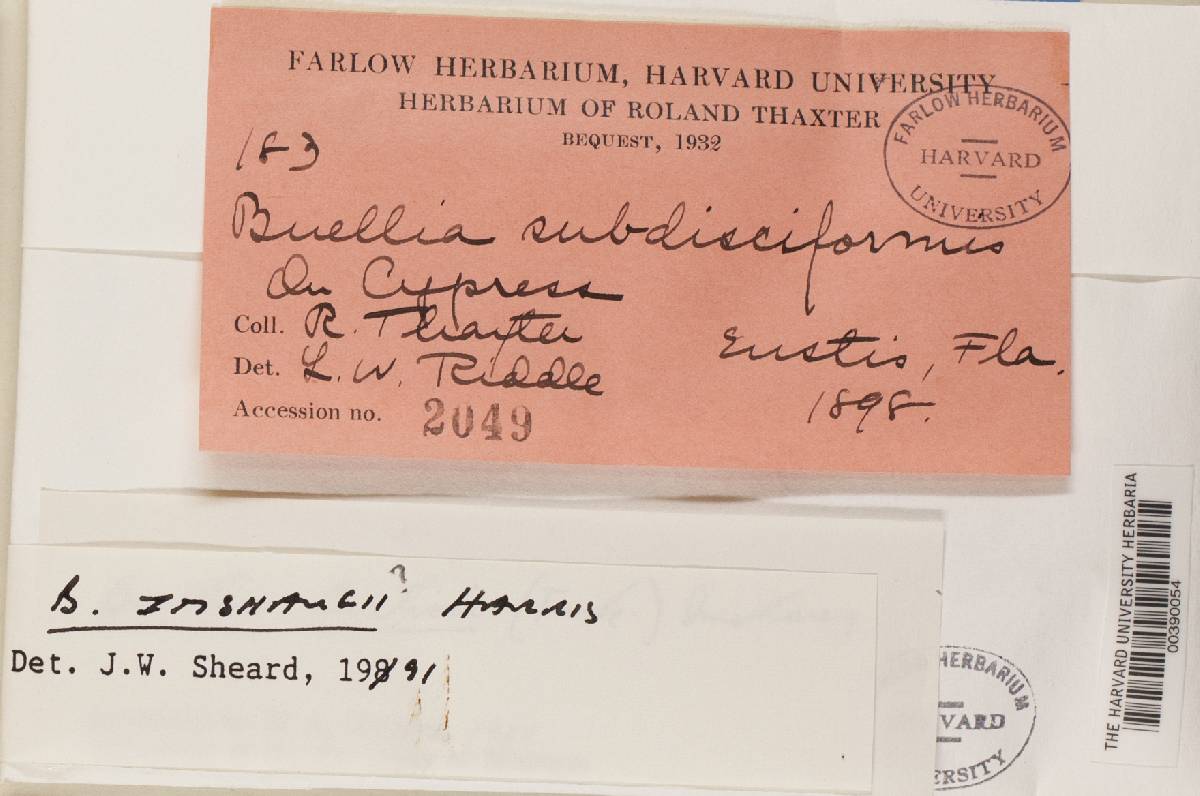 FARLOW HERBARIUM, HARVARD UNIVERSITY
HERBARIUM OF ROLAND THAXTER
BEQUEST, 1932
FARLOW HERBARIUM
HARVARD
UNIVERSITY
183
Buellia subdisciformis
On Cypress
Coll. R. Thaxter
Eustis, Fla.
Det. L. W. Riddle
1898.
Accession no. 2049
B. IMSHAUGII? HARRIS
Det. J.W. Sheard, 1991
HERBARIUM
VARD
ERSITY
THE HARVARD UNIVERSITY HERBARIA
00390054